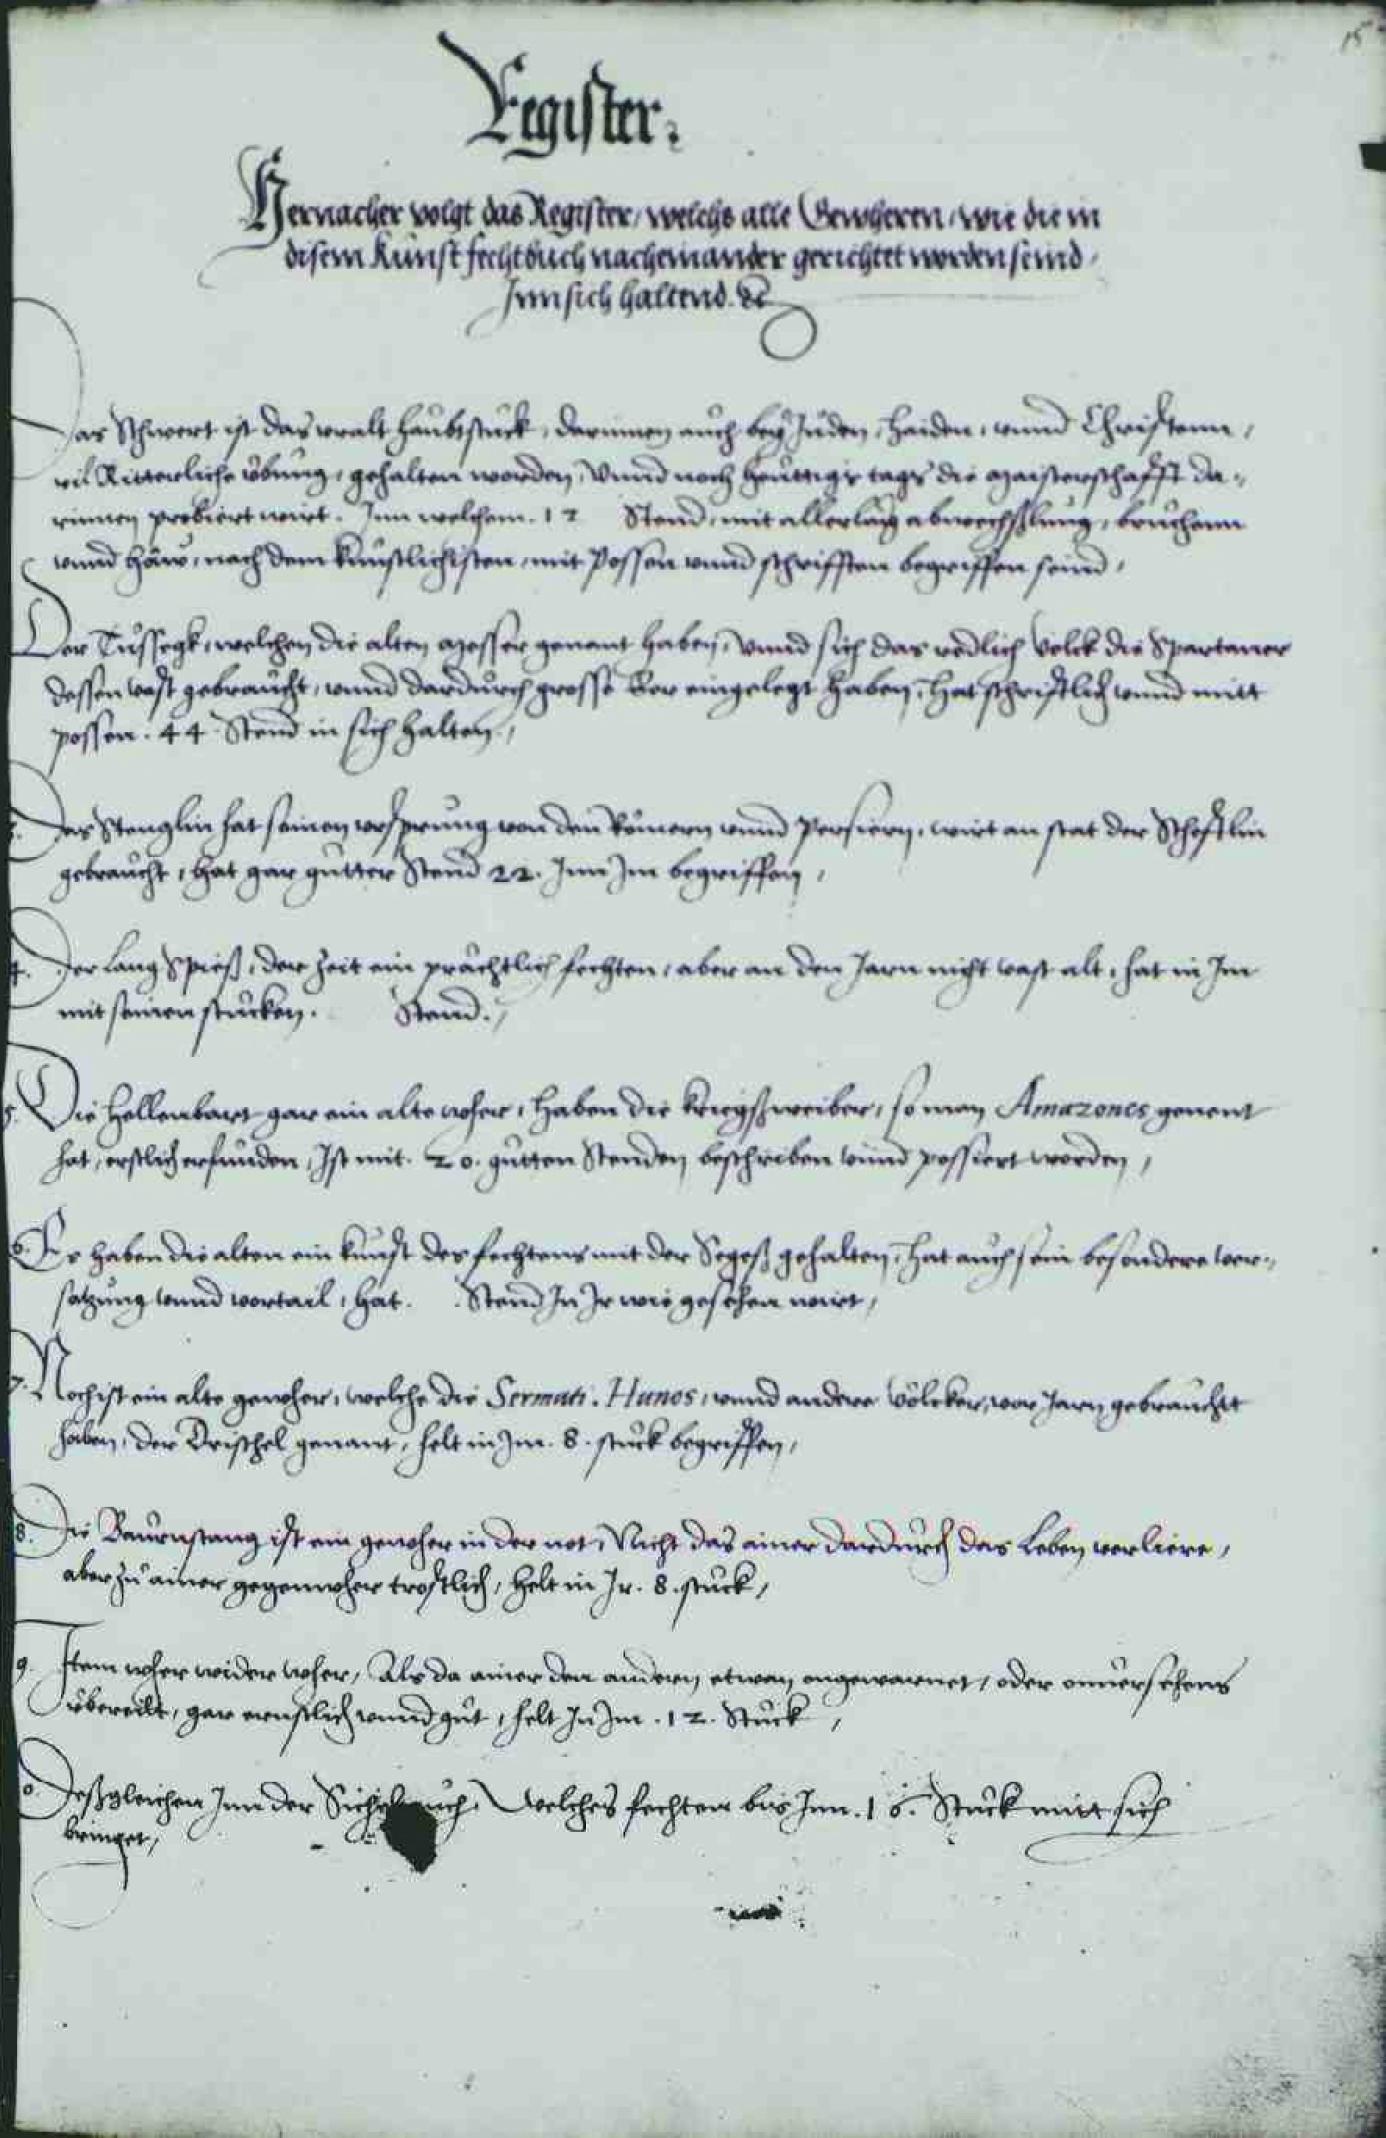 15
Register.
Hernacher volgt das Register, welchs alle Gewheren, wie die in
disem Kunst fechtbuch nacheinander gerichtet worden seind,
Inn sich haltend. &c
Das Schwert ist das vralt haubtstuck, darinnen auch bey Juden, Haiden, vnnd Christenn,
vil Ritterliche übung, gehalten worden, Vnnd noch heuttigs tags die Maisterschafft da-
rinnen probiert wirt. Inn welchem. 12 Stend, mit allerlay abwechßlung, bruchenn
vnnd häw, nach dem künstlichisten, mit Possen vnnd schrifften begriffen seind,
Der Tussegk, welchen die alten Messer genant haben, Vnnd sich das redlich Volck die Spartaner
dessen vast gebraucht, vnnd dardurch grosse Eer eingelegt haben, hat schrifftlich vnnd mitt
possen. 44 Stend in sich halten,
3. Das Stenglin hat seinen vrsprung von den Römern vnnd Persiern, wirt an stat der Scheftlin
gebraucht, hat gar gutter Stend 22. Inn Im begriffen,
4. Der lang Spieß, der zeit ein prächtlich fechten, aber an den Jarn nicht vast alt, hat in Im
mit seinen stucken. Stend,
5. Die Hellenbart gar ein alte wher, haben die kriegßweiber, so man Amazones genent
hat, erstlich erfunden, Ist mit. 20. gutten Stenden beschriben vnnd possiert worden,
6. Es haben die alten ein kunst des fechtens mit der Segeß gehalten, hat auch sein besondere ver-
satzung vnnd vortail, hat. . Stend In Ir wie gesehen wirt,
7. Noch ist ein alte gewher, welche die Sermati. Hunos, vnnd andere Völcker, vor Jarn gebraucht
haben, der Drischel genant, helt in Im. 8. stuck begriffen,
8. Die Baurnstang ist ein gewher in der not, Nicht das ainer dardurch das Leben verliere,
aber zu ainer gegenwher tröstlich, helt in Ir. 8. stuck,
9. Item wher wider wher, Als da ainer den andern etwan ongewarnet, oder onuersehens
übereilt, gar ernstlich vnnd gut, helt In Im. 12. Stuck,
Deßgleichen Inn der Sichel auch, Welches fechten bis Inn. 16. Stuck mitt sich
bringet,